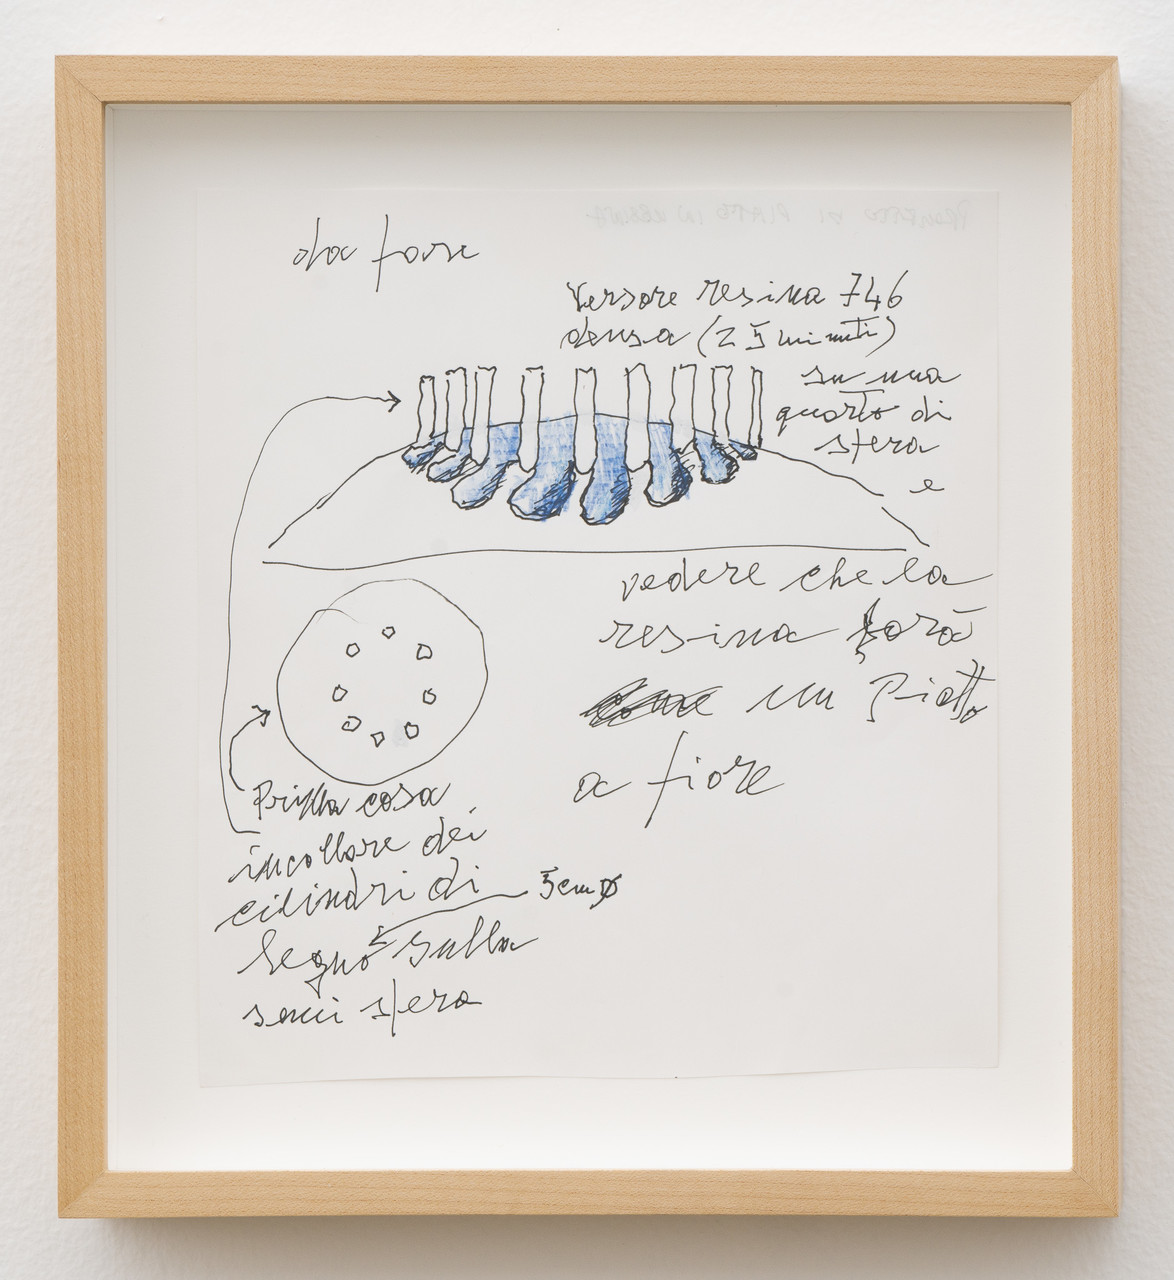 da fare
Versare resina 746
densa (25 minuti)
su una
quarto di
sfera
e
vedere che la
resina farà
un Piatto
a fiore
Prima cosa
incollare dei
cilindri di 5cm Ø
legno sulla
semi sfera